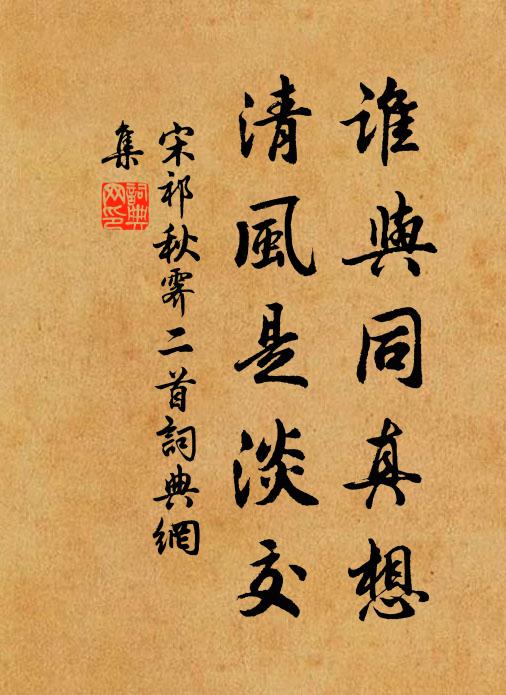 誰與同真想
清風是淡交
宋祁秋霽二首詞典網
集
詞典
网印